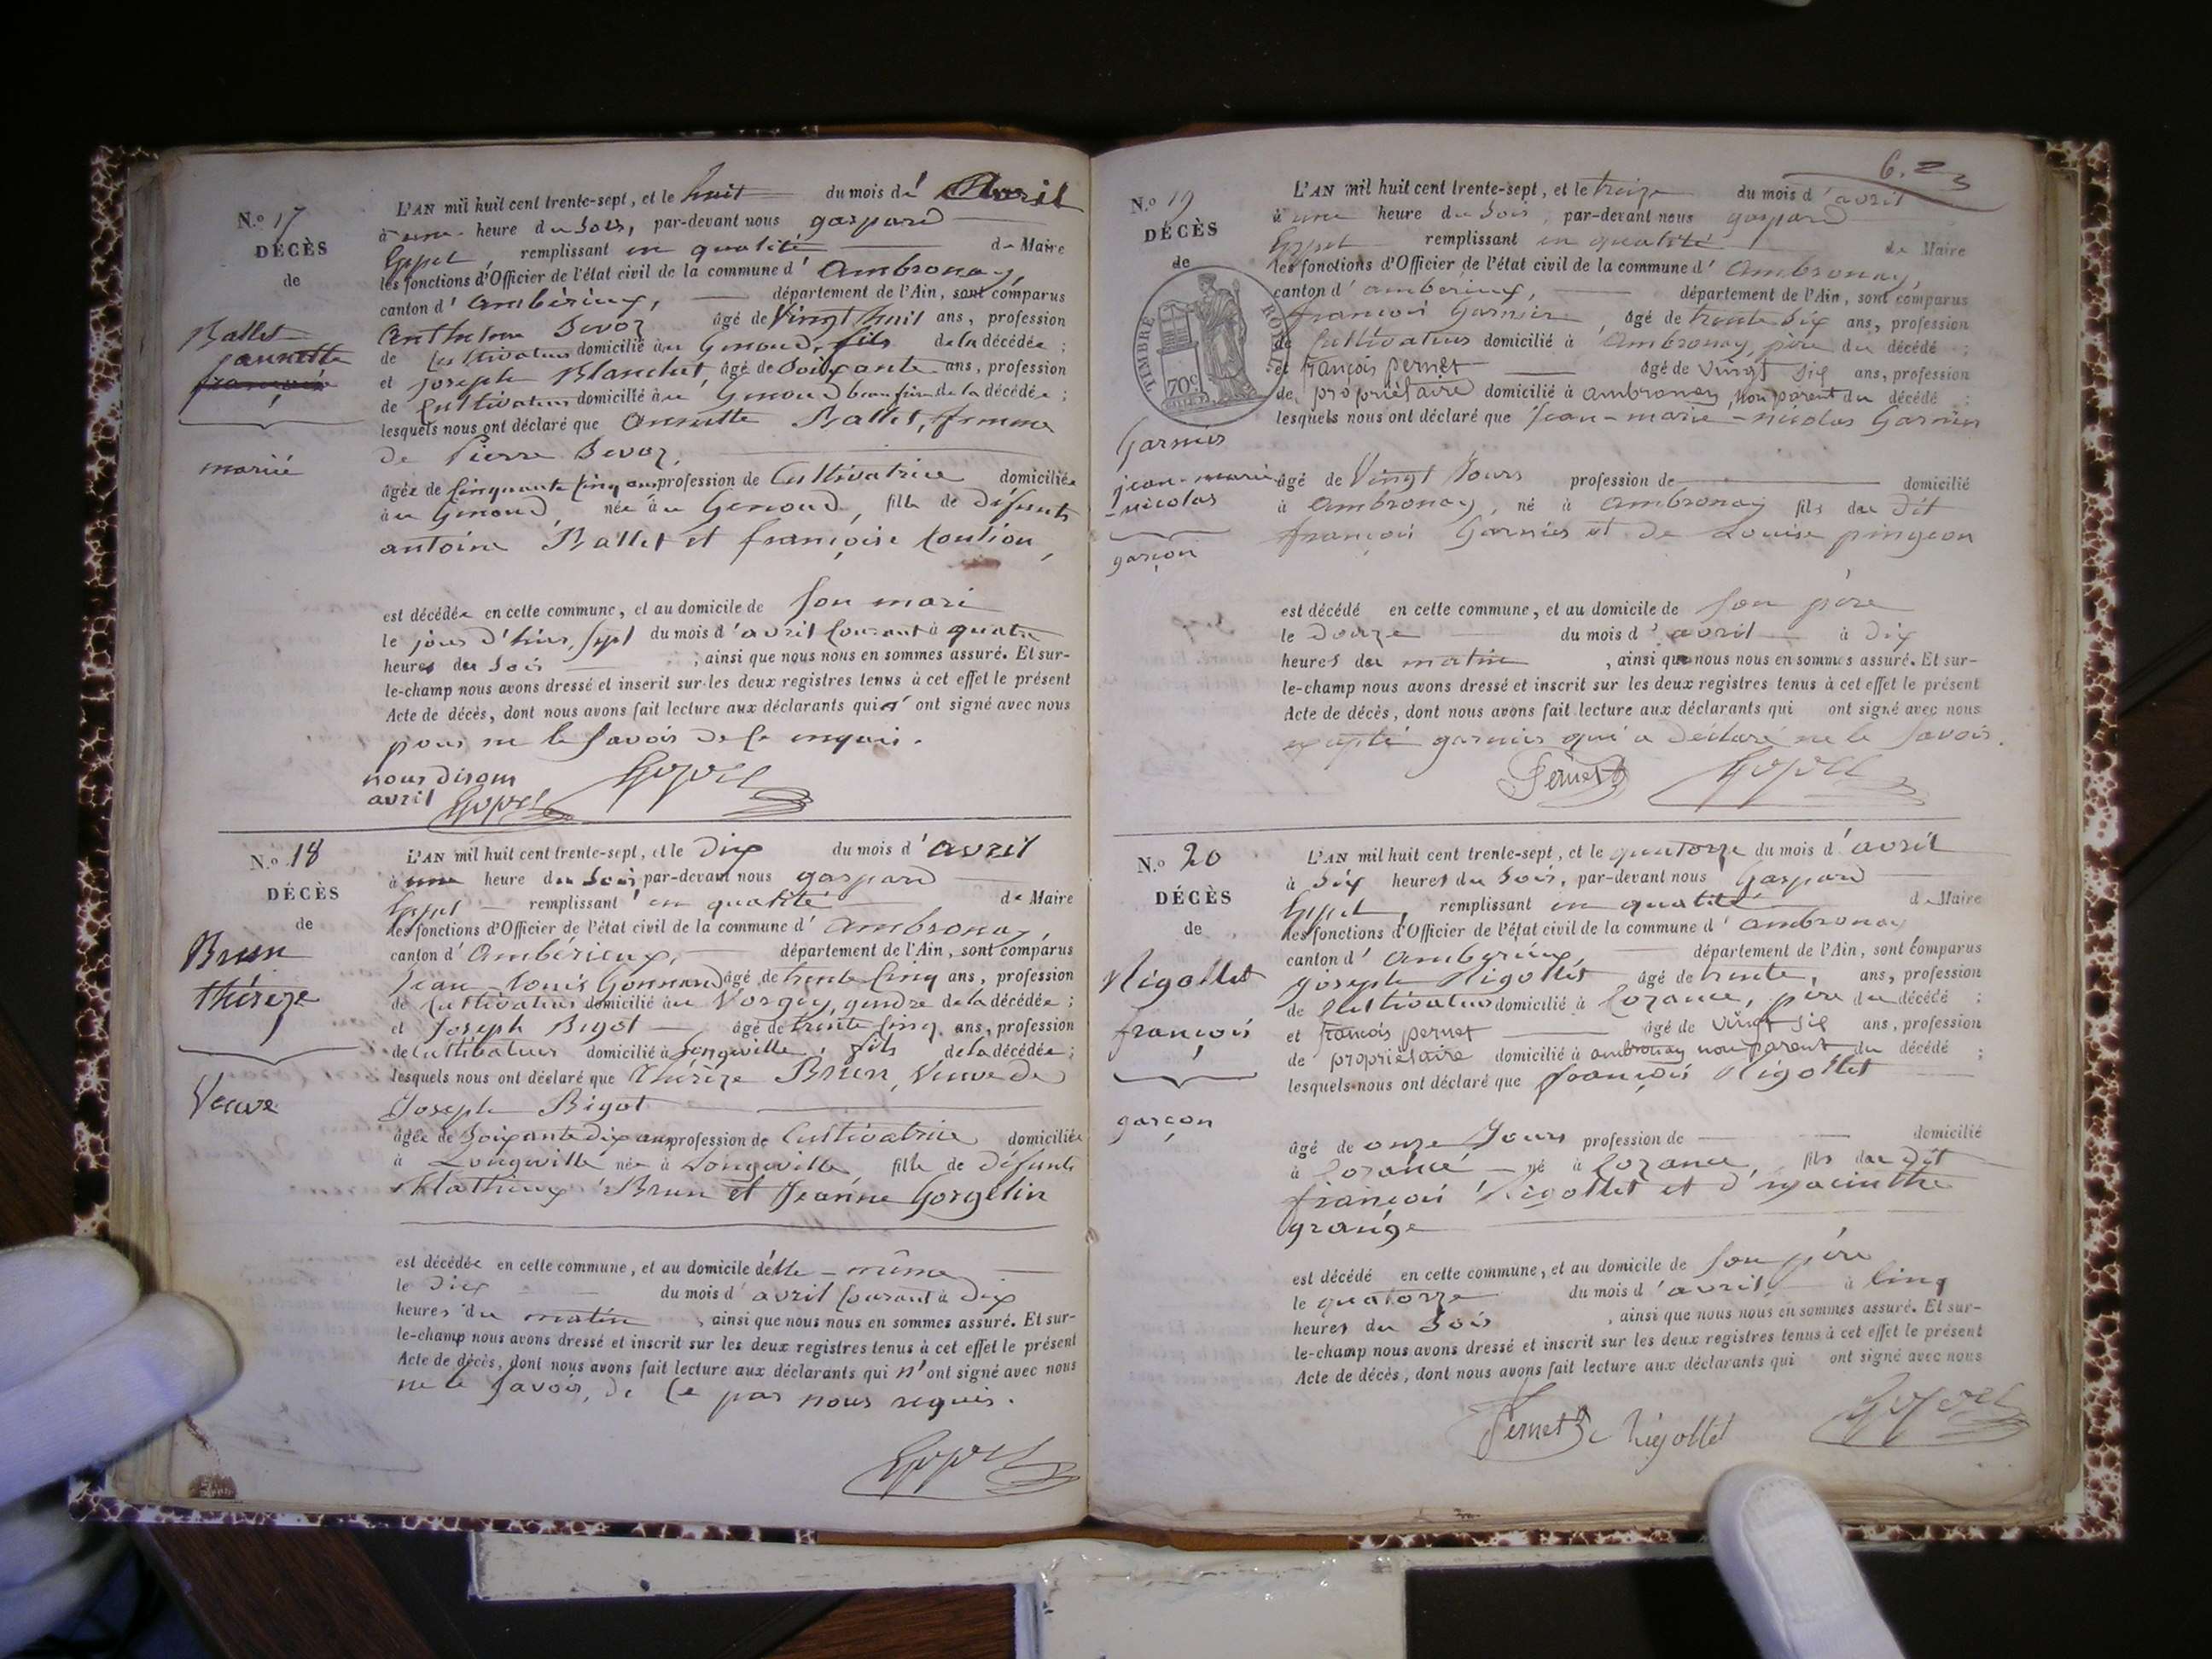 N.o 17
DÉCÈS
de
Ballet
jannette
françoise
mariée
L'AN mil huit cent trente-sept, et le huit du mois d' Avril
à une heure du soir, par-devant nous gaspard
remplissant en qualité de Maire
les fonctions d'Officier de l'état civil de la commune d' Ambronay,
canton d' Ambérieux, département de l'Ain, sont comparus
Anthelme Devoz âgé de Vingt huit ans, profession
de Cultivateur domicilié au Genoud, fils de la décédée ;
et joseph Blanchet, âgé de Soixante ans, profession
de Cultivateur domicilié au Genoud beau frère de la décédée ;
lesquels nous ont déclaré que annette Ballet, femme
De Pierre Devoz,
âgée de Cinquante Cinq ans profession de Cultivatrice domiciliée
au Genoud, née au Genoud, fille de défunts
antoine Ballet et françoise
est décédée en cette commune, et au domicile de son mari
le jour d'hier, sept du mois d'avril Courant à quatre
heures du soir ; ainsi que nous nous en sommes assuré. Et sur-
le-champ nous avons dressé et inscrit sur les deux registres tenus à cet effet le présent
Acte de décès, dont nous avons fait lecture aux déclarants qui n' ont signé avec nous
pour ne le savoir de ce enquis.
nous disons
avril
N.o 18
DÉCÈS
de
Brun
thérèze
Veuve
L'AN mil huit cent trente-sept, et le dix du mois d' avril
à une heure du soir, par-devant nous gaspard
remplissant en qualité de Maire
les fonctions d'Officier de l'état civil de la commune d' ambronay,
canton d' Ambérieux, département de l'Ain, sont comparus
Jean-Louis Gonnand âgé de trente Cinq ans, profession
de Cultivateur domicilié au Vorgey, gendre de la décédée ;
et Joseph Bigot âgé de trente Cinq ans, profession
de Cultivateur domicilié à Longeville, fils de la décédée ;
lesquels nous ont déclaré que thérèze Brun, Veuve de
Joseph Bigot
âgée de Soixante dix ans profession de Cultivatrice domiciliée
à Longeville née à Longeville fille de défunts
Mathieux Brun et Jeanne Gorgelin
est décédée en cette commune, et au domicile d'elle-même
le Dix du mois d' avril Courant à dix
heures du matin, ainsi que nous nous en sommes assuré. Et sur-
le-champ nous avons dressé et inscrit sur les deux registres tenus à cet effet le présent
Acte de décès, dont nous avons fait lecture aux déclarants qui n' ont signé avec nous
ne le savoir, de ce par nous requis.
6. 23
N.o 19
DÉCÈS
de
TIMBRE ROYAL
70c
Garnier
jean-marie
-nicolas
garçon
L'AN mil huit cent trente-sept, et le treize du mois d' avril
à une heure du soir, par-devant nous gaspard
remplissant en qualité de Maire
les fonctions d'Officier de l'état civil de la commune d' Ambronay,
canton d' amberieux, département de l'Ain, sont comparus
françois Garnier, âgé de trente Six ans, profession
de Cultivateur domicilié à Ambronay, père du décédé ;
et françois pernet âgé de vingt six ans, profession
de propriétaire domicilié à ambronay, non parent du décédé ;
lesquels nous ont déclaré que Jean-marie-nicolas Garnier
âgé de Vingt Jours profession de domicilié
à Ambronay, né à Ambronay fils du Dit
françois Garnier et de Louise pingeon
est décédé en cette commune, et au domicile de son père
le Douze du mois d' avril à Dix
heures du matin, ainsi que nous nous en sommes assuré. Et sur-
le-champ nous avons dressé et inscrit sur les deux registres tenus à cet effet le présent
Acte de décès, dont nous avons fait lecture aux déclarants qui ont signé avec nous
excepté garnier qui a Déclaré ne le savoir.
Pernet
N.o 20
DÉCÈS
de
Rigollet
françois
garçon
L'AN mil huit cent trente-sept, et le quatorze du mois d' avril
à six heures du soir, par-devant nous Gaspard
remplissant en qualité de Maire
les fonctions d'Officier de l'état civil de la commune d' ambronay
canton d' Amberieux, département de l'Ain, sont comparus
joseph Rigollet âgé de trente, ans, profession
de Cultivateur domicilié à Cozance, père du décédé ;
et françois pernet âgé de vingt six ans, profession
de propriétaire domicilié à ambronay non parent du décédé ;
lesquels nous ont déclaré que françois Rigollet
âgé de onze Jours profession de domicilié
à Cozance né à Cozance, fils du Dit
françois Rigollet et d'hyacinthe
grange
est décédé en cette commune, et au domicile de son père
le quatorze du mois d' avril à Cinq
heures du soir, ainsi que nous nous en sommes assuré. Et sur-
le-champ nous avons dressé et inscrit sur les deux registres tenus à cet effet le présent
Acte de décès, dont nous avons fait lecture aux déclarants qui ont signé avec nous
Pernet Rigollet